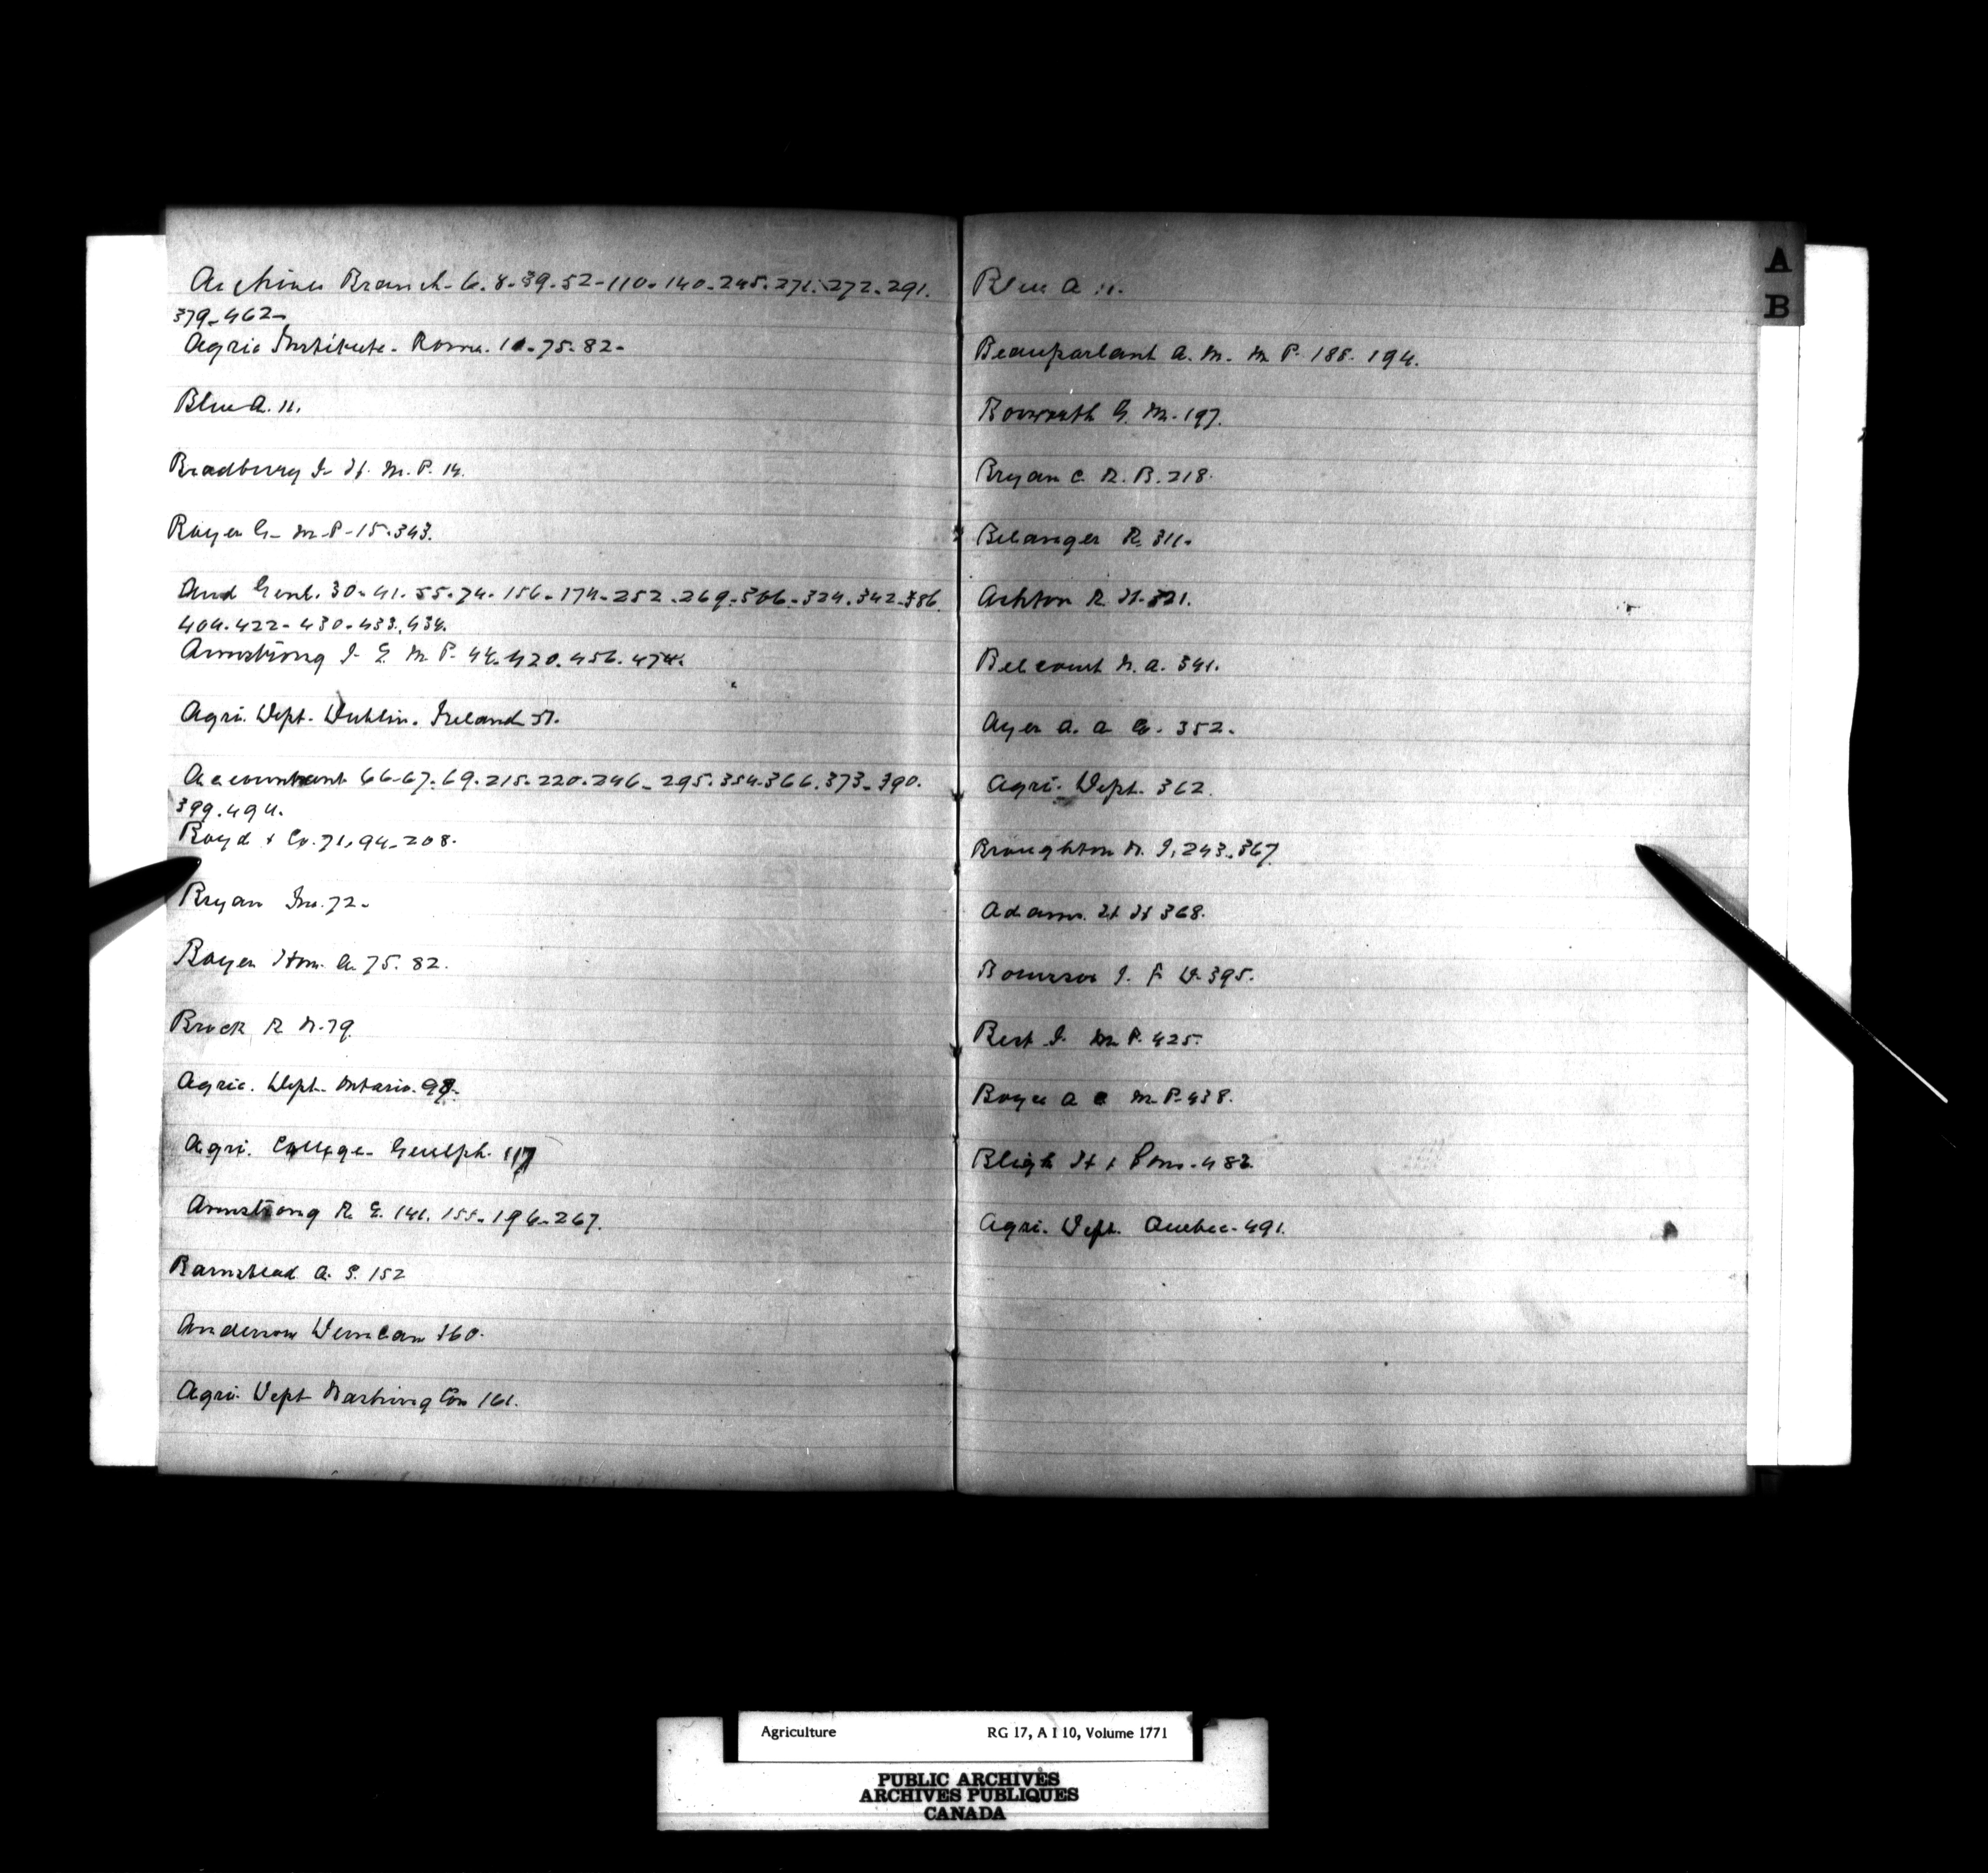 Archives Branch- 6. 8-39-52-110-140-245.271.272-291.
379-462-
Agric Institute- Rome. 10-75-82-
Blue A. 11.
Bradbury G. H. M. P. 14.
Boyer G- M-P-15-343.
Aud Genl. 30-41-55-74-156-174-252-269-306-324.342-386.
404-422-430-433.434.
Armstrong J. E. M. P. 44.420.456.474.
Agri. Dept- Dublin. Ireland 57.
Accountant 66-67-69-215-220-246-295.354.366.373-390.
399.494.
Boyd & Co. 71,94-208.
Bryan Jno. 72-
Boyer Hon. A. 75. 82.
Brock R W-79.
Agric. Dept- Ontario. 98-
Agri. College- Guelph. 117
Armstrong R. E. 141. 155-196-267.
Barnstead A. S. 152
Anderson Duncan 160.
Agri. Dept Washington 161.
Blue A 11.
A
B
Beauparlant A. M. M P. 188. 194.
Bosworth G. M. 197.
Bryan C. R. B. 218.
Belanger R. 311.
Ashton R. H. 321.
Belcourt N. A. 341.
Ayer A. A Co. 352.
Agri. Dept. 362.
Broughton W. J, 243-367
Adams. H H 368.
J. F. D-395.
Best J. M. P. 425.
Boyce A C M-P-438.
Bligh H & Sons-482.
Agri. Dept. Quebec-491.
Agriculture RG 17, A I 10, Volume 1771
PUBLIC ARCHIVES
ARCHIVES PUBLIQUES
CANADA